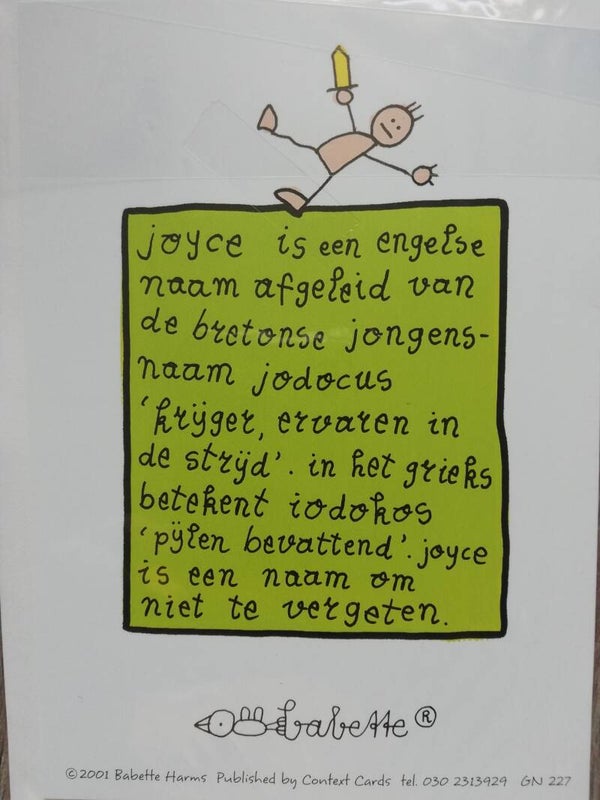 joyce is een engelse
naam afgeleid van
de bretonse jongens-
naam jodocus
‘krijger, ervaren in
de strijd’. in het grieks
betekent iodokos
‘pijlen bevattend’. joyce
is een naam om
niet te vergeten.
babette®
©2001 Babette Harms Published by Context Cards tel. 030 2313929 GN 227